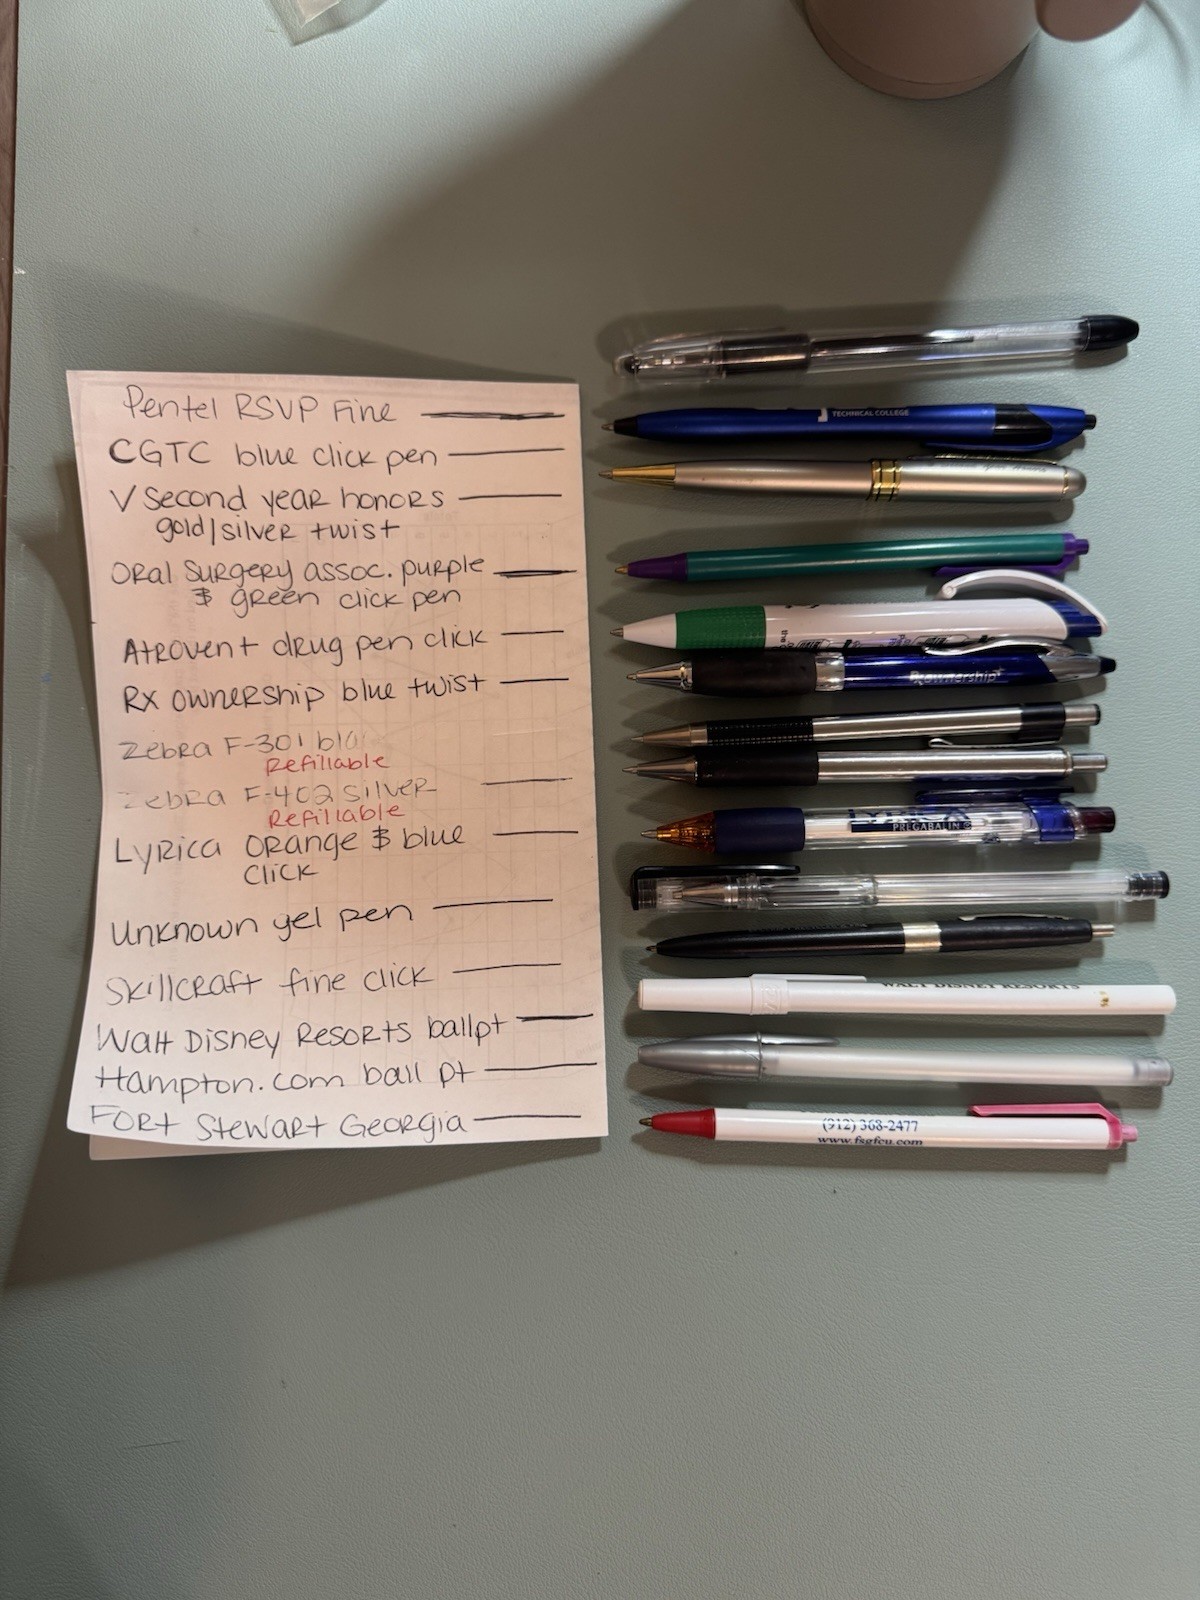 Pentel RSVP Fine
CGTC blue click pen
V Second year honors
gold/silver twist
Oral Surgery assoc. purple
& green click pen
Atrovent drug pen click
Rx ownership blue twist
Zebra F-301
Refillable
Zebra F-402 silver
Refillable
Lyrica orange & blue
click
Unknown gel pen
Skillcraft fine click
Walt Disney Resorts ballpt
Hampton.com ball pt
Fort Stewart Georgia
TECHNICAL COLLEGE
Rxownership
PREGABALIN
WALT DISNEY RESORTS
(912) 368-2477
www.fsgfcu.com